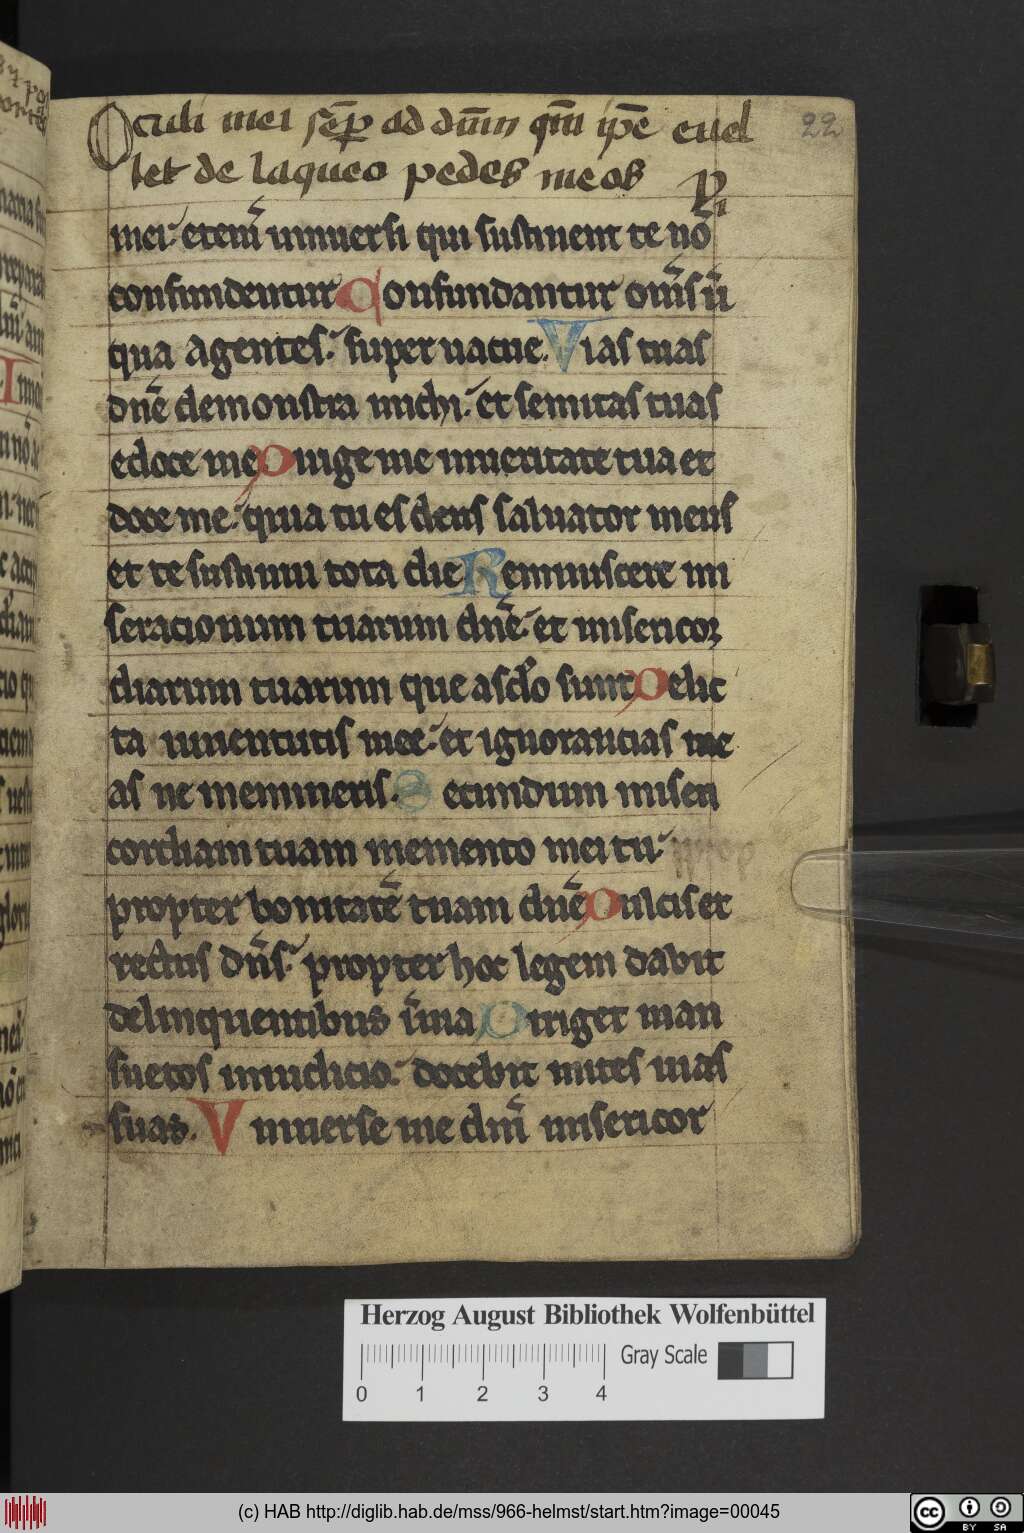 Oculi mei sēp ad dūm qm̄ ip̄e euel
let de laqueo pedes meos
22
mei· etem̄ uniuersi qui sustinent te nō
confundentur Confundantur om̄s ini
qua agentes· super uacue. Vias tuas
dn̄e demonstra michi· et semitas tuas
edoce me Dirige me inueritate tua et
doce me· quia tu es deus saluator meus
et te sustinui tota die Reminiscere mi
seracionum tuarum dn̄e· et misericor
diarum tuarum que a sc̄lo sunt Delic
ta iuuentutis mee· et ignorancias me
as ne memineris. Secundum miseri
cordiam tuam memento mei tu·
propter bonitatē tuam dn̄e Dulcis et
rectus dn̄s· propter hoc legem dabit
delinquentibus in uia Diriget man
suetos iniudicio· docebit mites uias
suas. Vniuerse uie dn̄i misericor
Herzog August Bibliothek Wolfenbüttel
Gray Scale
0 1 2 3 4
(c) HAB http://diglib.hab.de/mss/966-helmst/start.htm?image=00045
CC BY SA